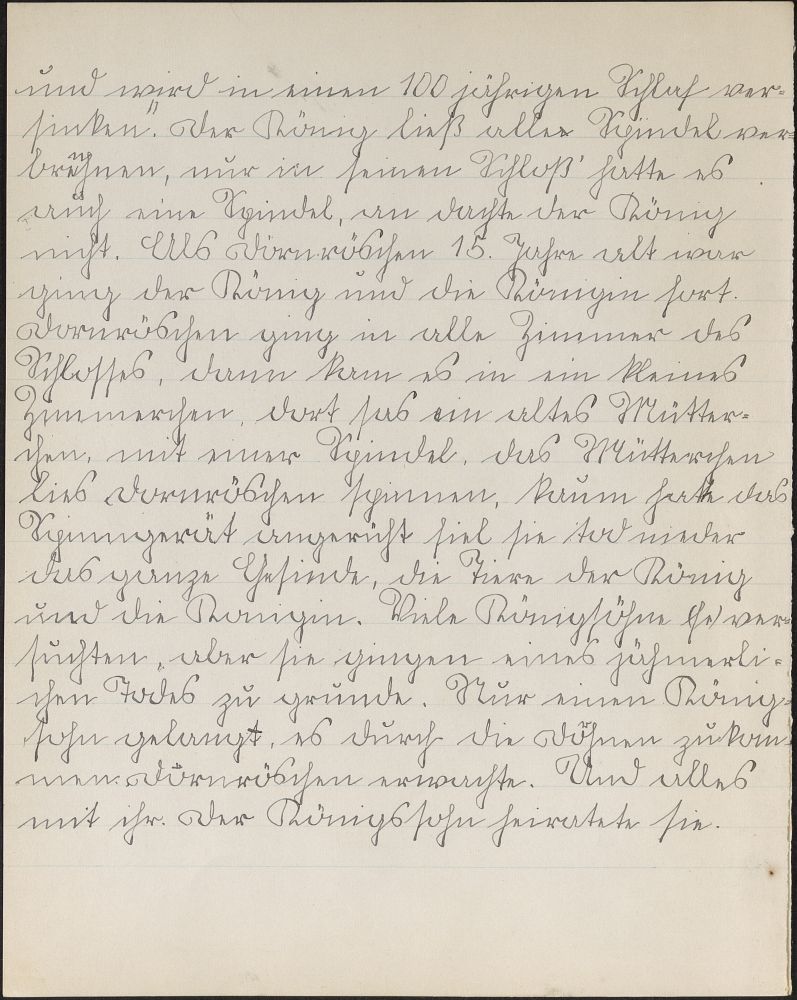 und wird in einen 100 jährigen Schlaf ver-
sinken". Der König ließ aller Spindel ver-
brehnen, nur in seinen Schloß' hatte es
auch eine Spindel, an dachte der König
nicht. Als Dörnröschen 15. Jahre alt war
ging der König und die Königin fort.
Dornröschen ging in alle Zimmer des
Schlosses, dann kam es in ein kleines
Zimmerchen, dort sas ein altes Mütter-
chen, mit einer Spindel, das Mütterchen
lies Dornröschen spinnen, kaum hate das
Spinngerät angericht fiel sie tod nieder
das ganze Gesinde, die Tiere der König
und die Konigin. Viele Königsöhne (se) ver-
suchten, aber sie gingen eines jähmerli-
chen Todes zu grunde. Nur einen König-
sohn gelangt, es durch die Döhnen zukom-
men. Dörnröschen erwachte. Und alles
mit ihr. Der Königssohn heiratete sie.